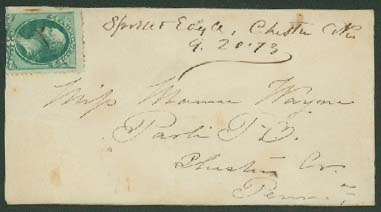 Spruce Edge, Chester Co Pa
9. 20. 73
Miss Mamie Wayne
Paoli P.O.
Chester Co.
Penna